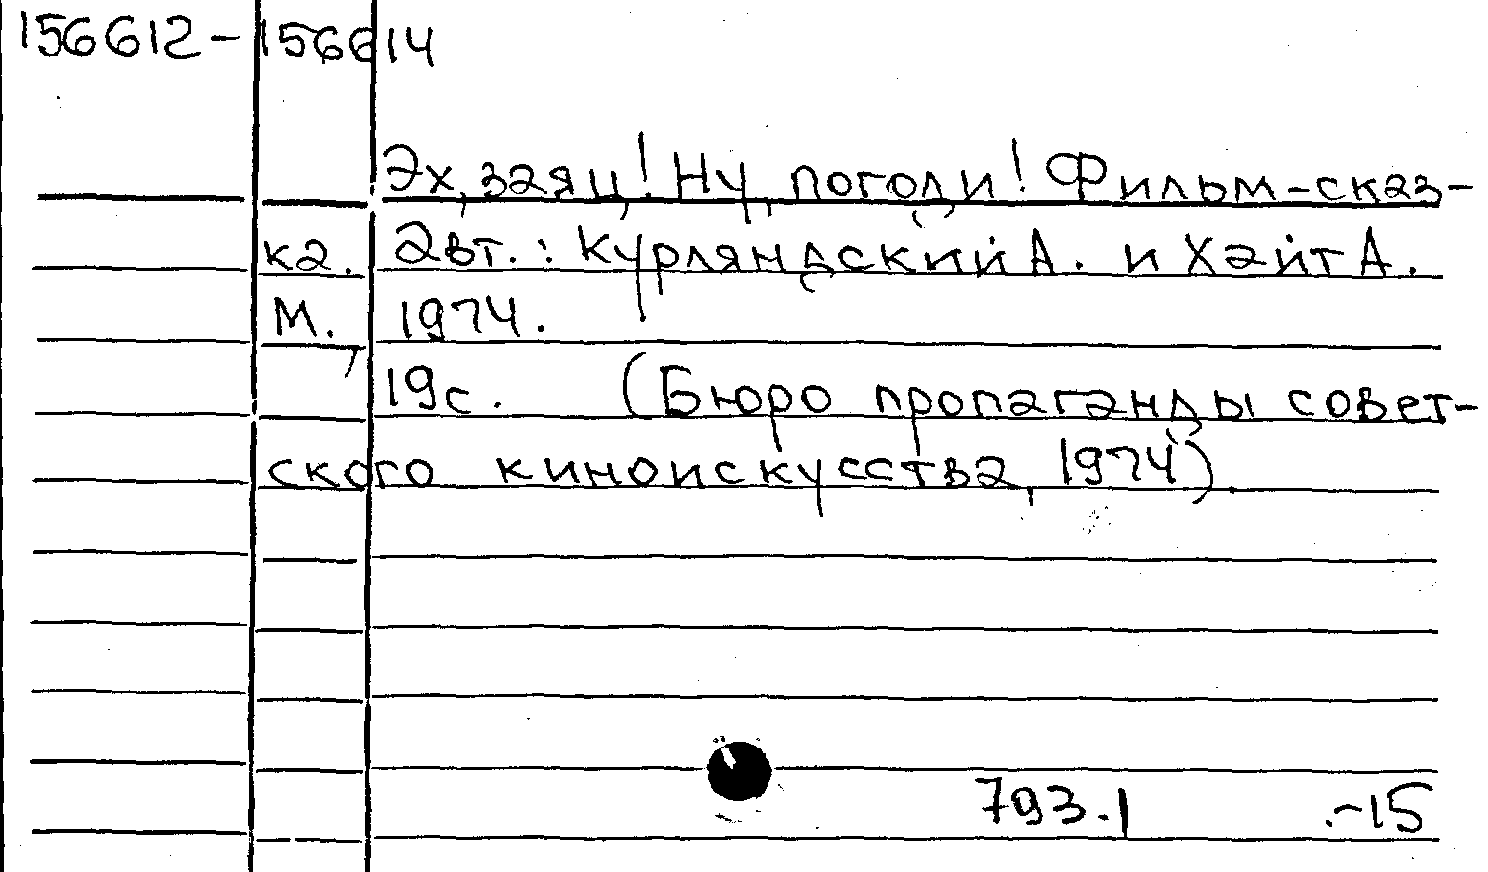 156612-156614
Эх, заяц! Ну, погоди! Фильм-сказ-
ка. Авт.: Курляндский А. и Хайт А.
М., 1974.
19с. (Бюро пропаганды совет-
ского киноискусства, 1974).
793.1 -15